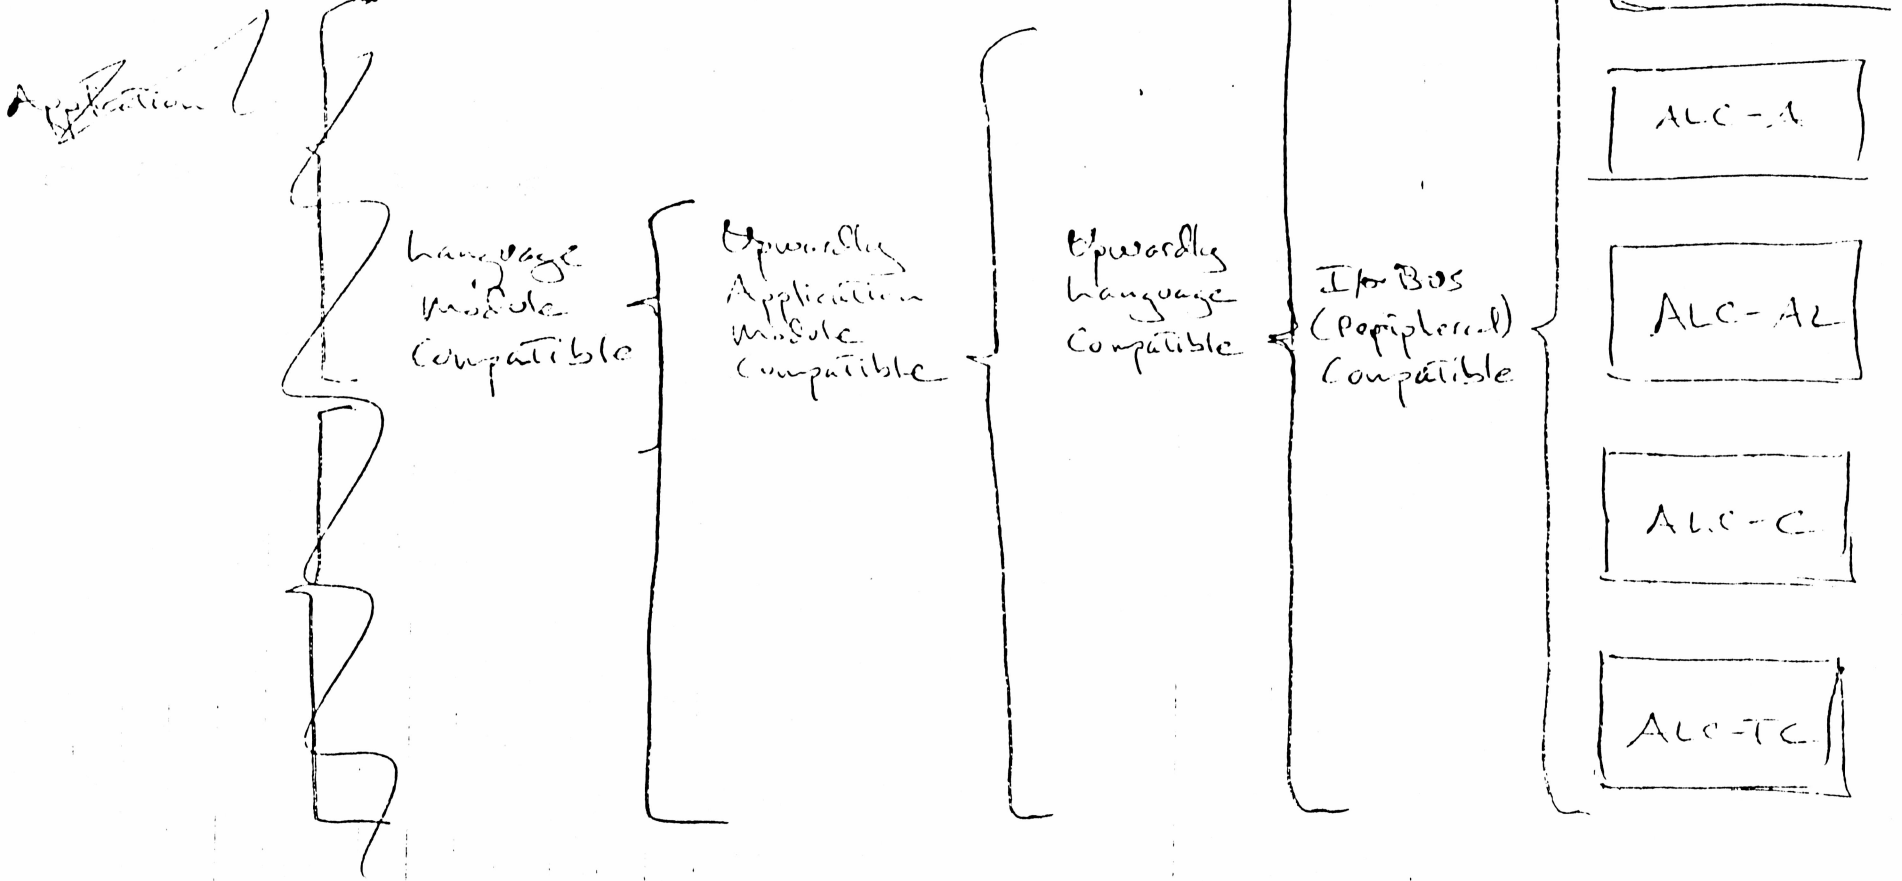 Application
Language
Module
Compatible
Upwardly
Application
Module
Compatible
Upwardly
Language
Compatible
I/O BUS
(Peripheral)
Compatible
ALC-A
ALC-AL
ALC-C
ALC-TC